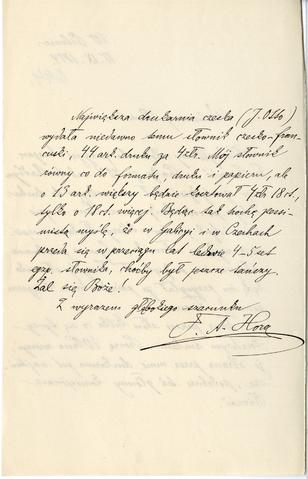 Największa drukarnia czeska (J. Otto)
wydała niedawno temu słownik czesko-fran-
cuski, 44 ark. druku za 4 złr. Mój słownik
równy co do formatu, druku i papieru, ale
o 15 ark. większy będzie kosztował 4 złr 18 ct,
tylko o 18 ct. więcej. Będąc tak trochę pesi-
mistą myślę, że w Galicyi i w Czechach
przeda się w przeciągu lat ledwie 4-5 set
egz. słownika, choćby był jeszcze tańszy.
Żal się Boże!
Z wyrazem głębokiego szacunku
F. A. Hora